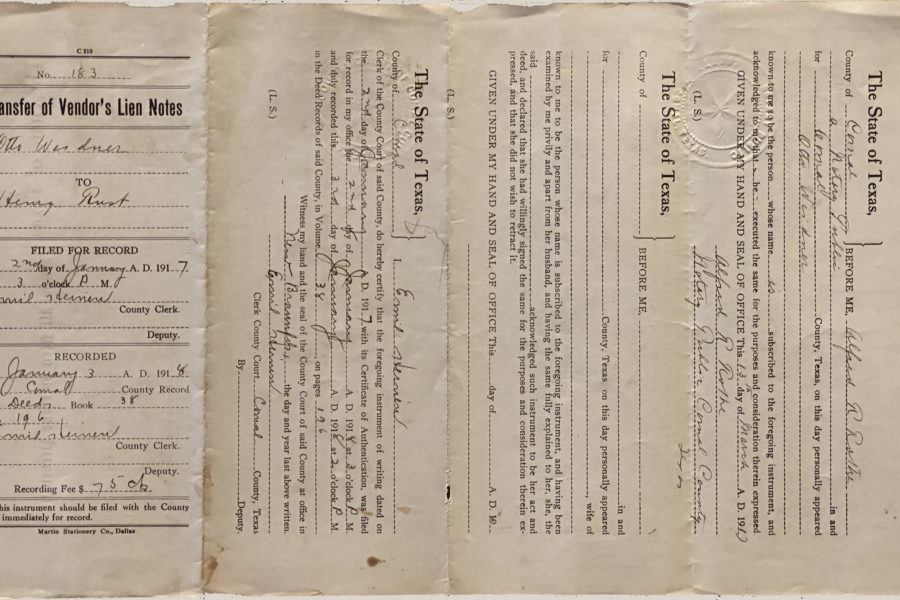 C 210
No. 183
ansfer of Vendor's Lien Notes
Otto Weidner
TO
Henry Rust
FILED FOR RECORD
2nd day of January A. D. 1917
3 o'clock P. M.
Emil Heinen
County Clerk.
Deputy.
RECORDED
January 3 A. D. 1918
Comal County Record
Deeds Book 38
196
Emil Heinen
County Clerk.
Deputy.
Recording Fee $ 75 cts
his instrument should be filed with the County
immediately for record.
Martin Stationery Co., Dallas
The State of Texas,
County of Comal
I, Emil Heinen
Clerk of the County Court of said County, do hereby certify that the foregoing instrument of writing dated on
the 2nd day of January A. D. 1917 with its Certificate of Authentication, was filed
for record in my office the 2nd day of January A. D. 1918 at 3 o'clock P. M.
and duly recorded this 3rd day of January A. D. 1918 at 2 o'clock P. M.
in the Deed Records of said County, in Volume 38 on pages 196
Witness my hand and the seal of the County Court of said County at office in
New Braunfels, the day and year last above written.
(L. S.)
Emil Heinen
Clerk County Court, Comal County, Texas
By Deputy.
The State of Texas,
County of
BEFORE ME,
in and
for County, Texas on this day personally appeared
, wife of
known to me to be the person whose name is subscribed to the foregoing instrument, and having been
examined by me privily and apart from her husband, and having the same fully explained to her, she, the
said acknowledged such instrument to be her act and
deed, and declared that she had willingly signed the same for the purposes and consideration therein ex-
pressed, and that she did not wish to retract it.
GIVEN UNDER MY HAND AND SEAL OF OFFICE This day of A. D. 19
(L. S.)
The State of Texas,
County of Comal
BEFORE ME, Alfred R Rothe
a Notary Public in and
for Comal County, Texas, on this day personally appeared
Otto Weidner
known to me to be the person whose name is subscribed to the foregoing instrument, and
acknowledged to me that he executed the same for the purposes and consideration therein expressed.
GIVEN UNDER MY HAND AND SEAL OF OFFICE This day of March A. D. 191
(L. S.)
Alfred R Rothe
Notary Public Comal County
Texas